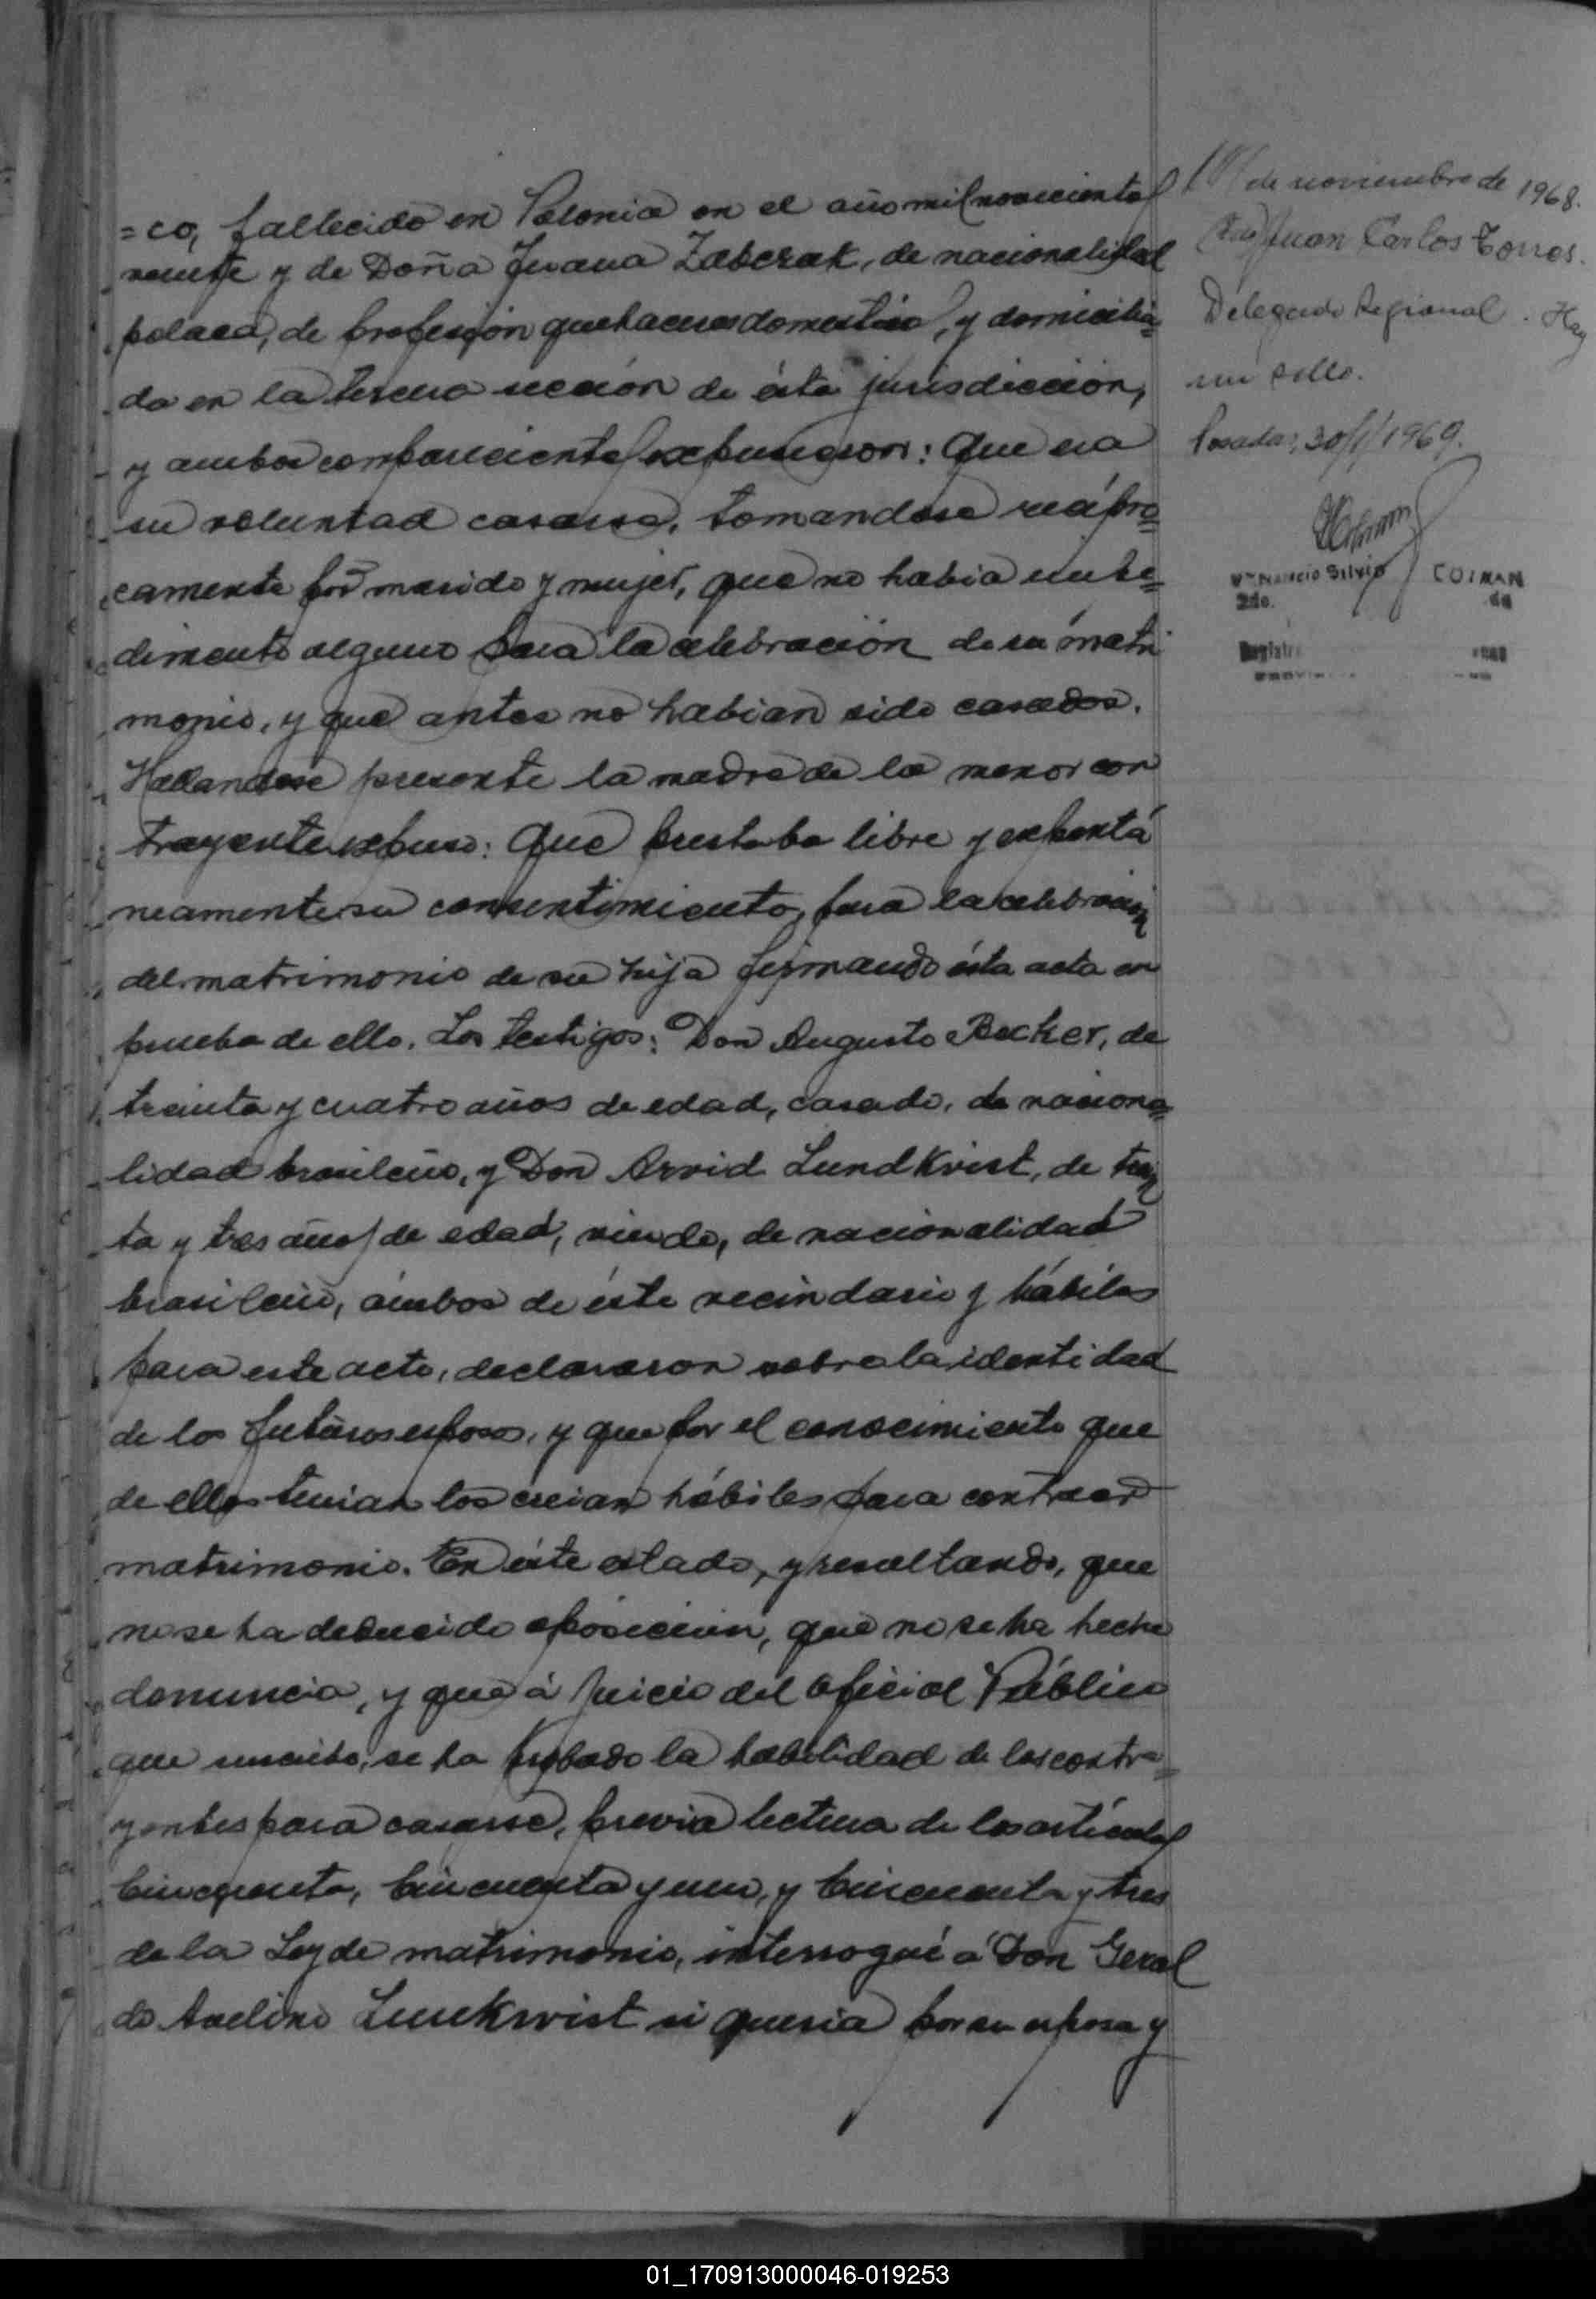 =co, fallecido en Polonia en el año mil novecientos
veinte y de Doña Juana Zabczak, de nacionalidad
polaca, de profesión quehaceres domestico, y domicilia=
da en la tercera sección de ésta jurisdicción,
y ambos comparecientes expusieron: Que era
su voluntad casarse, tomandose recípro=
camente por marido y mujer, que no habia impe=
dimento alguno para la celebración de su matri
monio, y que antes no habian sido casados.
Hallandose presente la madre de la menor con
trayente expuso: Que prestaba libre y expontá
neamente su consentimiento, para la celebración
del matrimonio de su hija firmando ésta acta en
prueba de ello. Los testigos: Don Augusto Becker, de
treinta y cuatro años de edad, casado, de naciona=
lidad brasileño, y Don Arvid Lundkvist, de trein
ta y tres años de edad, viudo, de nacionalidad
brasileño, ámbos de éste vecindario y hábiles
para este acto, declararon sobre la identidad
de los futuros esposos, y que por el conocimiento que
de ellos tenian los creian hábiles para contraer
matrimonio. En éste estado, y resultando, que
no se ha deducido oposicion, que no se ha hecho
denuncia, y que á juicio del oficial Público
que suscribe, se ha probado la habilidad de los contra=
yentes para casarse, previa lectura de los artículos
Cincuenta, Cincuenta y uno, y Cincuenta y tres
de la Ley de matrimonio, interrogué á Don Geral
do Avelino Lunkvist si queria por su esposa y
de noviembre de 1968.
Juan Carlos Torres.
Delegado Regional. Hay
un sello.
Posadas, 30/1/1969.
Silvio COIMAN
2do.
01_170913000046-019253